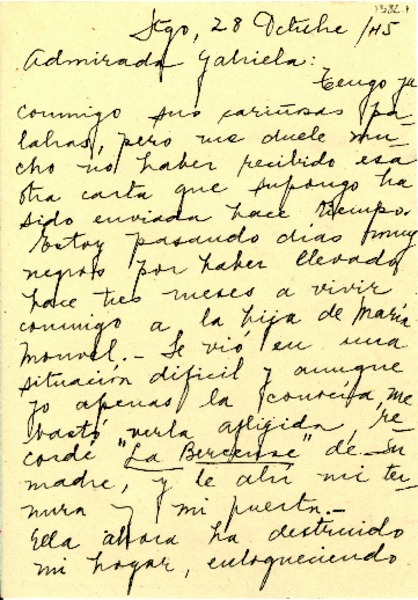 Stgo, 28 Octubre /45
Admirada Gabriela:
Tengo ya
conmigo sus cariñosas pa-
labras, pero me duele mu-
cho no haber recibido esa
otra carta que supongo ha
sido enviada hace tiempo.
Estoy pasando días muy
negros por haber llevado
hace tres meses a vivir
conmigo a la hija de María
Monvel.- Se vió en una
situación difícil y aunque
yo apenas la conocía, me
bastó verla afligida, re-
cordé "La Berceuse" de su
madre, y le abrí mi ter-
nura y mi puerta.-
Ella ahora ha destruido
mi hogar, enloqueciendo